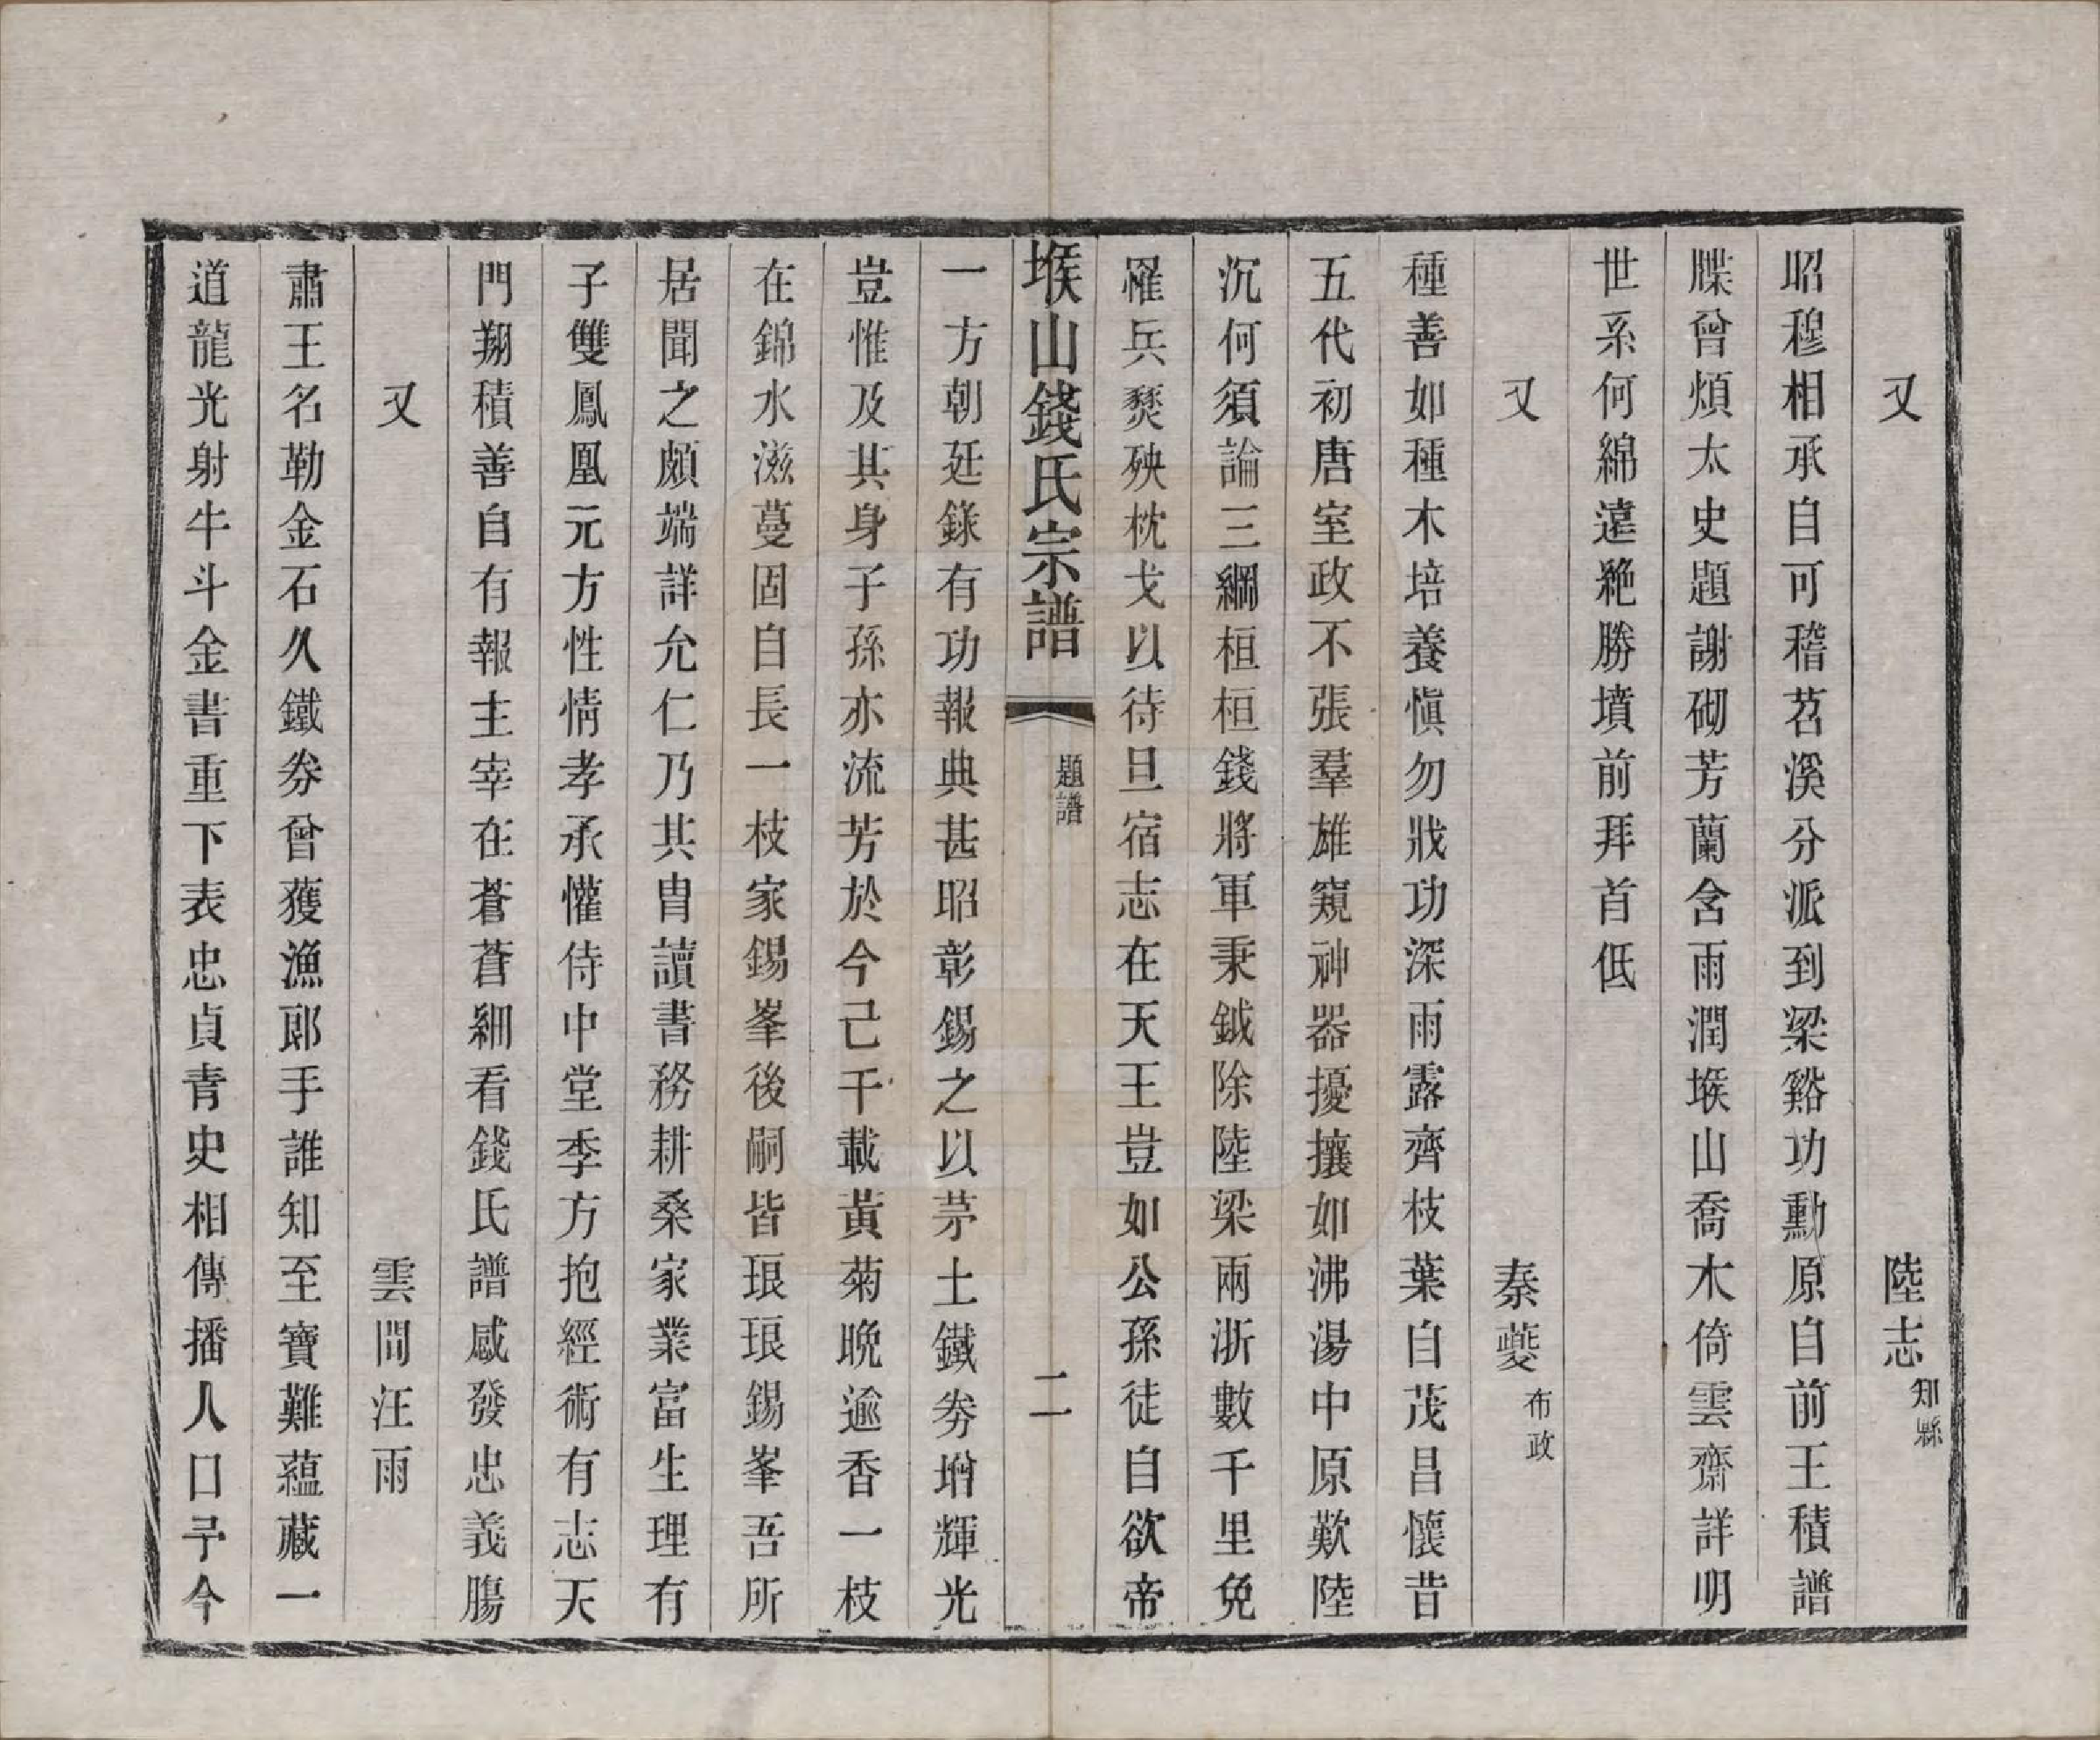 又　陸志知縣
昭穆相承自可稽苕溪分派到梁谿功勳原自前王積譜
牒曾煩太史題謝砌芳蘭含雨潤堠山喬木倚雲齋詳明
世系何綿遠絶勝墳前拜首低
又　秦夔布政
種善如種木培養慎勿戕功深雨露齊枝葉自茂昌懷昔
五代初唐室政不張羣雄窺神器擾攘如沸湯中原歎陸
沉何須論三綱桓桓錢將軍秉鉞除陸梁兩浙數千里免
罹兵燹殃枕戈以待旦宿志在天王豈如公孫徒自欲帝
堠山錢氏宗譜　題譜　二
一方朝廷錄有功報典甚昭彰錫之以茅土鐵券增輝光
豈惟及其身子孫亦流芳於今已千載黃菊晚逾香一枝
在錦水滋蔓固自長一枝家錫峯後嗣皆琅琅錫峯吾所
居聞之頗端詳允仁乃其胄讀書務耕桑家業富生理有
子雙鳳凰元方性情孝承懽侍中堂季方抱經術有志天
門翔積善自有報主宰在蒼蒼細看錢氏譜感發忠義腸
又　雲間汪雨
肅王名勒金石久鐵券曾獲漁郎手誰知至寶難蘊藏一
道龍光射牛斗金書重下表忠貞青史相傳播人口予今